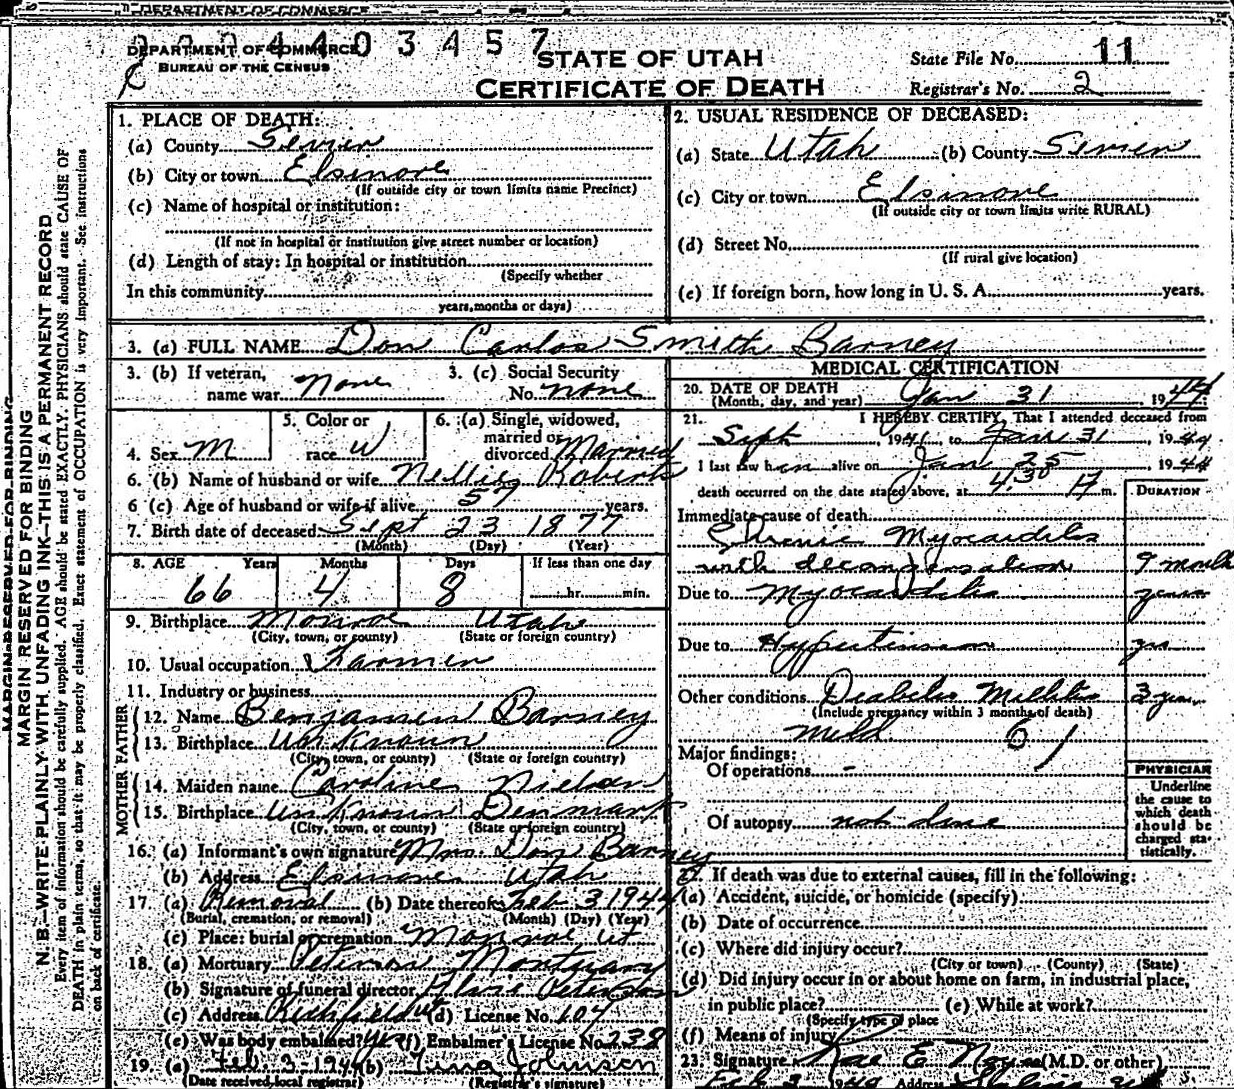 DEPARTMENT OF COMMERCE
4403457
DEPARTMENT OF COMMERCE
BUREAU OF THE CENSUS
STATE OF UTAH
CERTIFICATE OF DEATH
State File No. 11
Registrar's No. 2
MARGIN RESERVED FOR BINDING
MARGIN RESERVED FOR BINDING
N. B.—WRITE PLAINLY WITH UNFADING INK—THIS IS A PERMANENT RECORD
Every item of information should be carefully supplied. AGE should be stated EXACTLY. PHYSICIANS should state CAUSE OF
DEATH in plain terms, so that it may be properly classified. Exact statement of OCCUPATION is very important. See instructions
on back of certificate.
1. PLACE OF DEATH:
(a) County Sevier
(b) City or town Elsinore
(If outside city or town limits name Precinct)
(c) Name of hospital or institution:
(If not in hospital or institution give street number or location)
(d) Length of stay: In hospital or institution
(Specify whether
In this community
years, months or days)
2. USUAL RESIDENCE OF DECEASED:
(a) State Utah (b) County Sevier
(c) City or town Elsinore
(If outside city or town limits write RURAL)
(d) Street No.
(If rural give location)
(e) If foreign born, how long in U. S. A. years.
3. (a) FULL NAME Don Carlos Smith Barney
3. (b) If veteran,
name war None
3. (c) Social Security
No. none
4. Sex M
5. Color or
race W
6. (a) Single, widowed,
married or
divorced Married
6. (b) Name of husband or wife Nellie Roberts
6 (c) Age of husband or wife if alive 57 years.
7. Birth date of deceased Sept 23 1877
(Month) (Day) (Year)
8. AGE Years Months Days If less than one day
66 4 8 hr. min.
9. Birthplace Monroe Utah
(City, town, or county) (State or foreign country)
10. Usual occupation Farmer
11. Industry or business
FATHER
12. Name Benjamin Barney
13. Birthplace Unknown
(City, town, or county) (State or foreign country)
MOTHER
14. Maiden name Caroline Nielson
15. Birthplace Unknown Denmark
(City, town, or county) (State or foreign country)
16. (a) Informant's own signature Mrs. Don Barney
(b) Address Elsinore Utah
17. (a) Removal (b) Date thereof Feb 3 1944
(Burial, cremation, or removal) (Month) (Day) (Year)
(c) Place: burial or cremation Monroe Ut
18. (a) Mortuary Peterson Mortuary
(b) Signature of funeral director Peterson
(c) Address Richfield Ut (d) License No. 107
(e) Was body embalmed? yes (f) Embalmer's License No. 238
19. (a) Feb. 3-1944 (b) Tina Johnson
(Date received local registrar) (Registrar's signature)
MEDICAL CERTIFICATION
20. DATE OF DEATH
(Month, day, and year) Jan 31 1944
21. I HEREBY CERTIFY, That I attended deceased from
Sept, 1941 to Jan 31, 1944
I last saw him alive on Jan 25 1944
death occurred on the date stated above, at 4:30 P m.
DURATION
Immediate cause of death
Chronic Myocarditis
with decompensation 9 months
Due to Myocarditis years
Due to Hypertension yrs
Other conditions Diabetes Mellitus 3 years
(Include pregnancy within 3 months of death)
Mild 61
Major findings:
Of operations -
Of autopsy not done
PHYSICIAN
Underline
the cause to
which death
should be
charged sta-
tistically.
22. If death was due to external causes, fill in the following:
(a) Accident, suicide, or homicide (specify)
(b) Date of occurrence
(c) Where did injury occur?
(City or town) (County) (State)
(d) Did injury occur in or about home on farm, in industrial place,
in public place? (e) While at work?
(Specify type of place
(f) Means of injury
23 Signature Rae E Noyes (M.D. or other)
Address